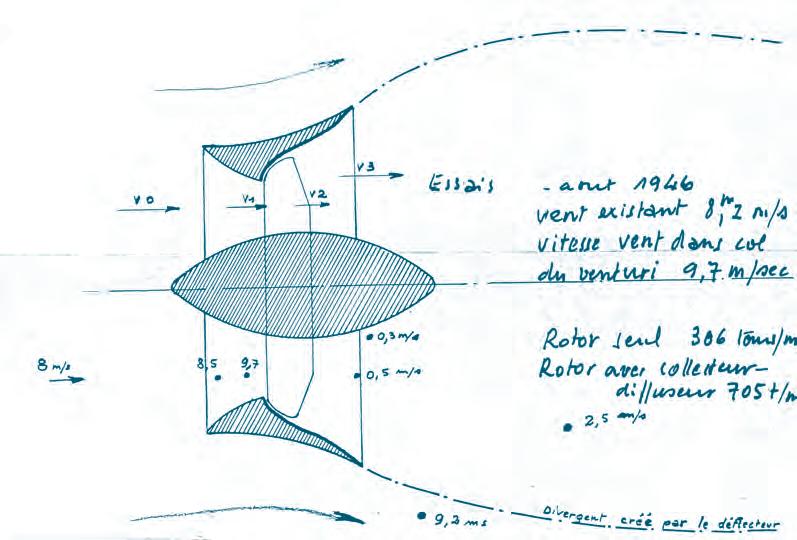 V3
Essais
- aout 1946
V0
V1
V2
vent existant 8,2 m/s
vitesse vent dans col
du venturi 9,7 m/sec
0,3 m/s
Rotor seul 306 tours/m
8 m/s
8,5
9,7
0,5 m/s
Rotor avec collecteur-
diffuseur 705 t/m
2,5 m/s
9,2 ms
Divergent créé par le déflecteur